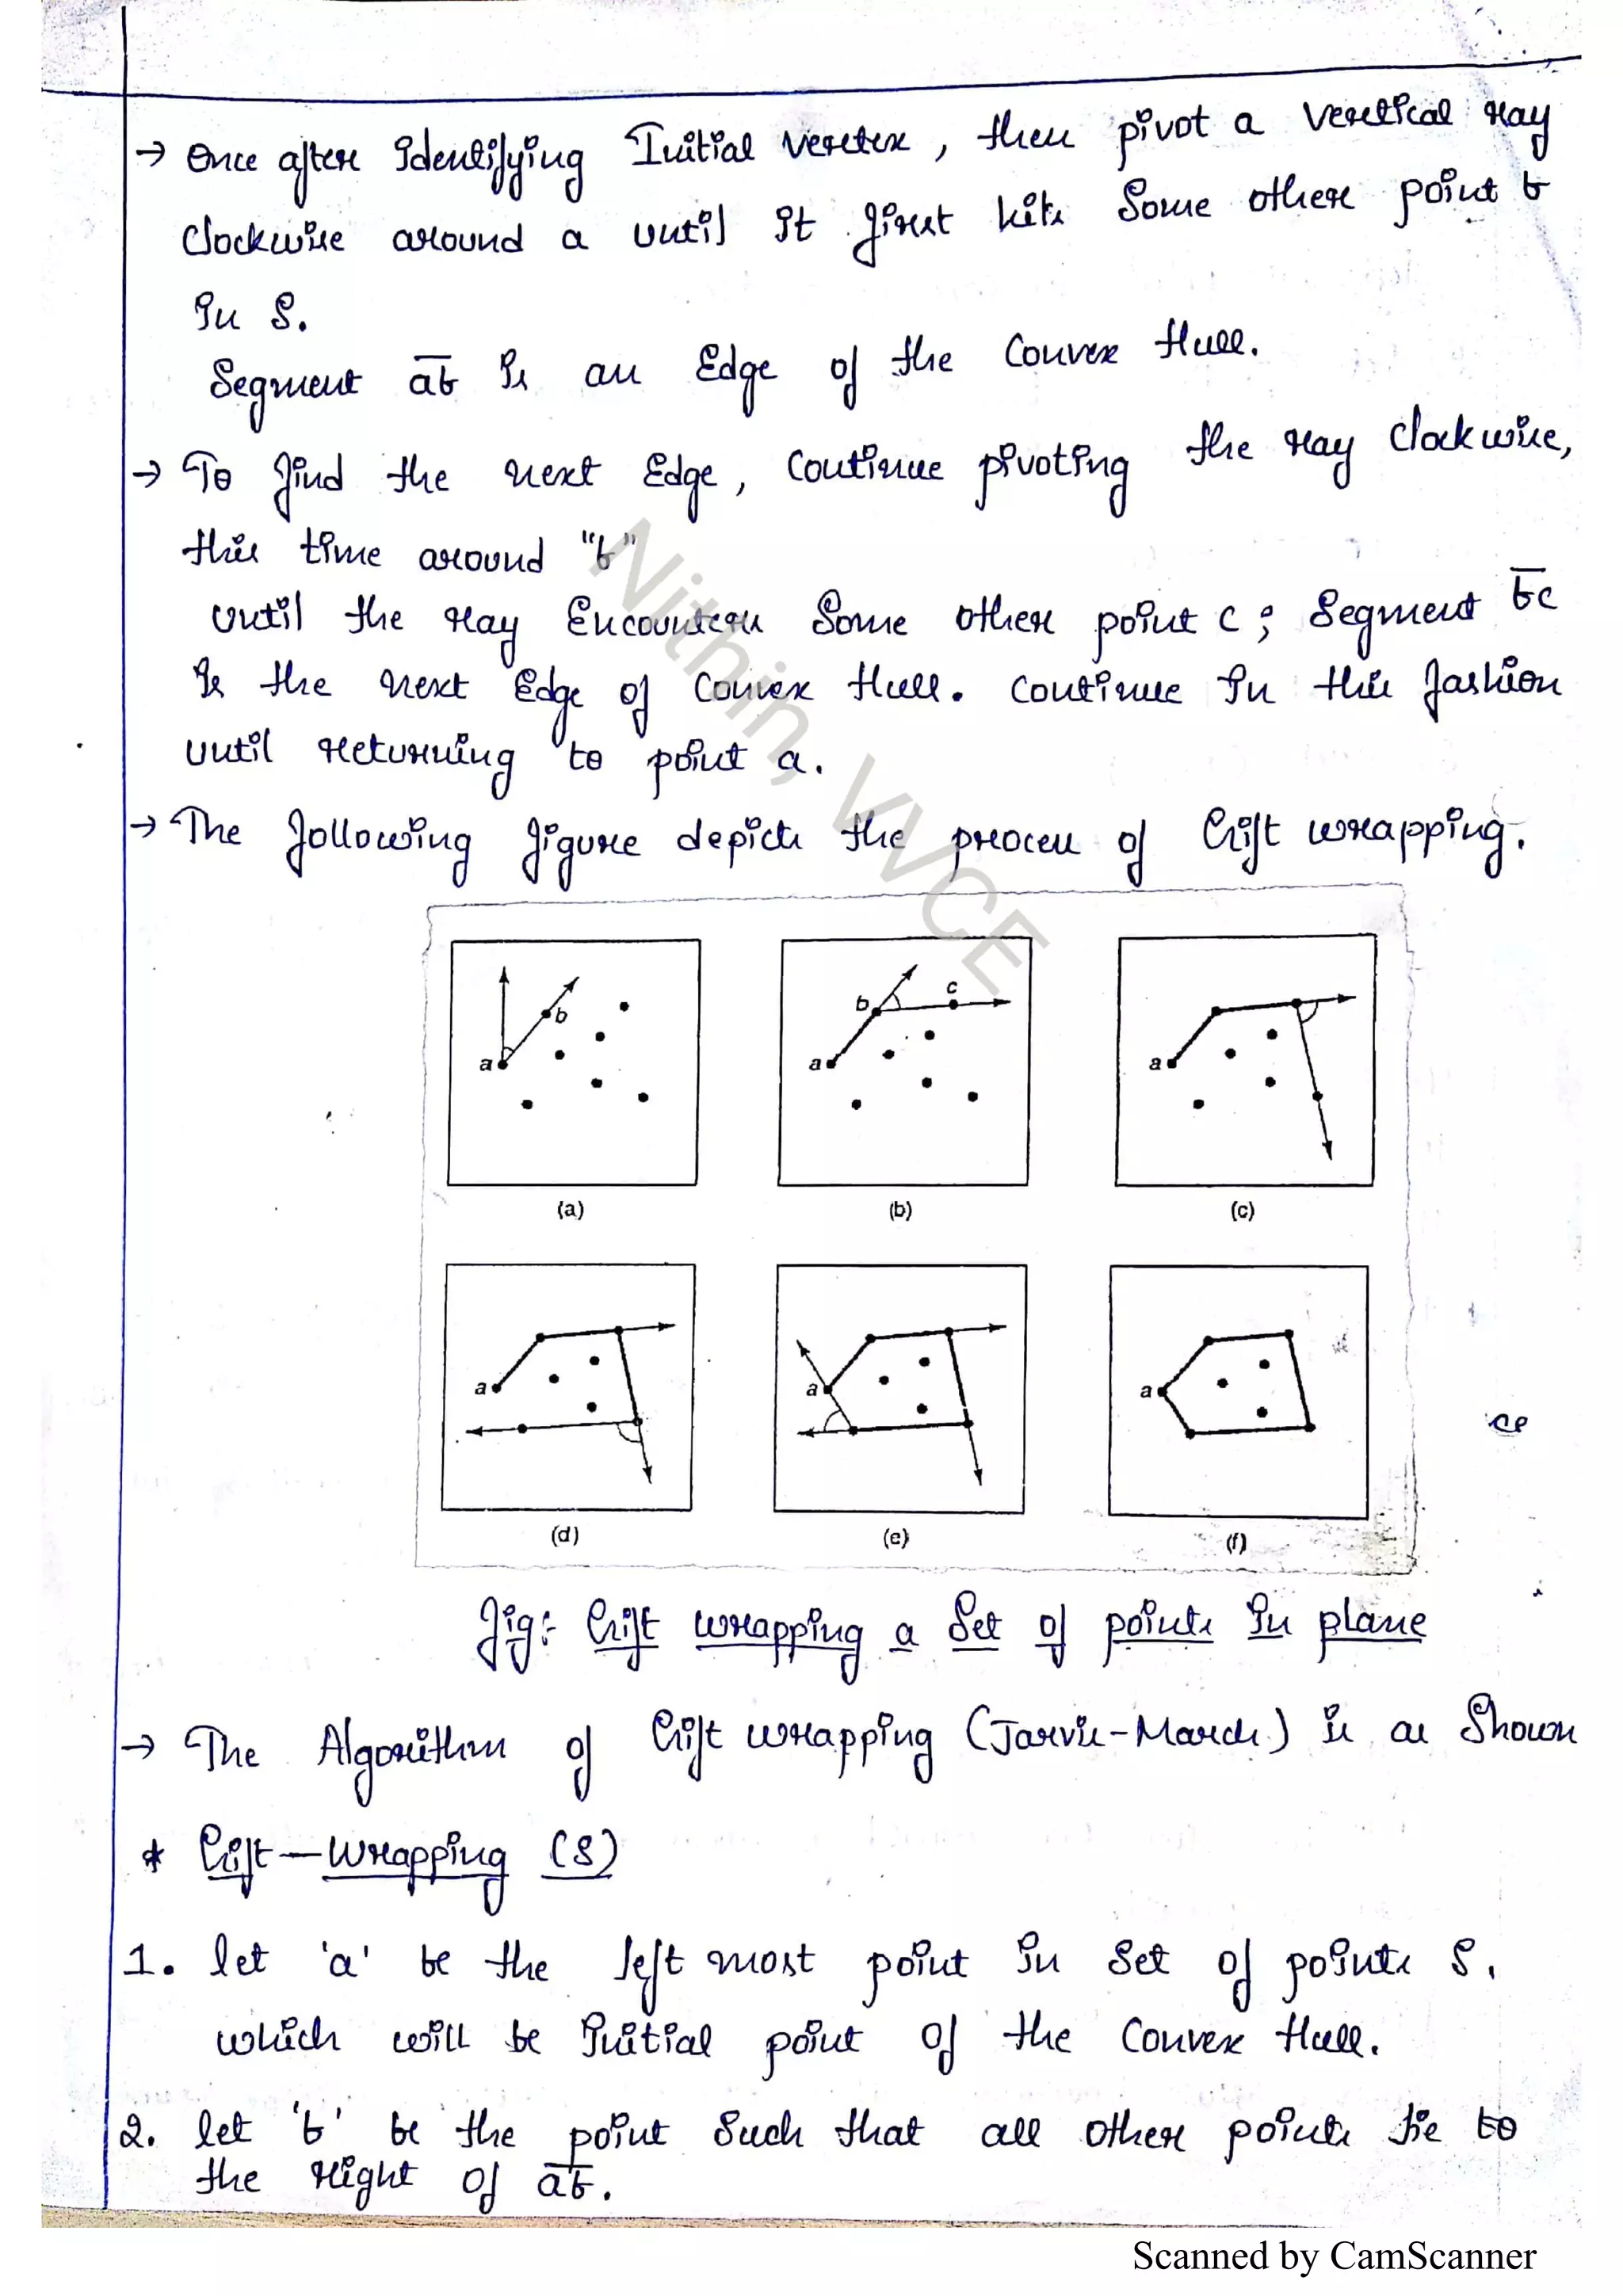 → Once after Identifying Initial vertex, then pivot a vertical ray
clockwise around a until it first hits Some other point b
In S.
Segment ab is an Edge of the Convex Hull.
→ To find the next Edge, Continue pivoting the ray clockwise,
this time around "b"
until the ray Encounters Some other point c; Segment bc
Is the next Edge of Convex Hull. Continue In this fashion
until returning to point a.
→ The following figure depicts the process of Gift wrapping.
Nithin, VVCE
a b
(a)
a b c
(b)
a
(c)
a
(d)
a
(e)
a
(f)
ce
fig:- Gift wrapping a Set of points In plane
→ The Algorithm of Gift wrapping (Jarvis-March) is as Shown
* Gift-Wrapping (S)
1. let 'a' be the left most point in Set of points S.
which will be Initial point of the Convex Hull.
2. let 'b' be the point Such that all other points lie to
the right of ab.
Scanned by CamScanner